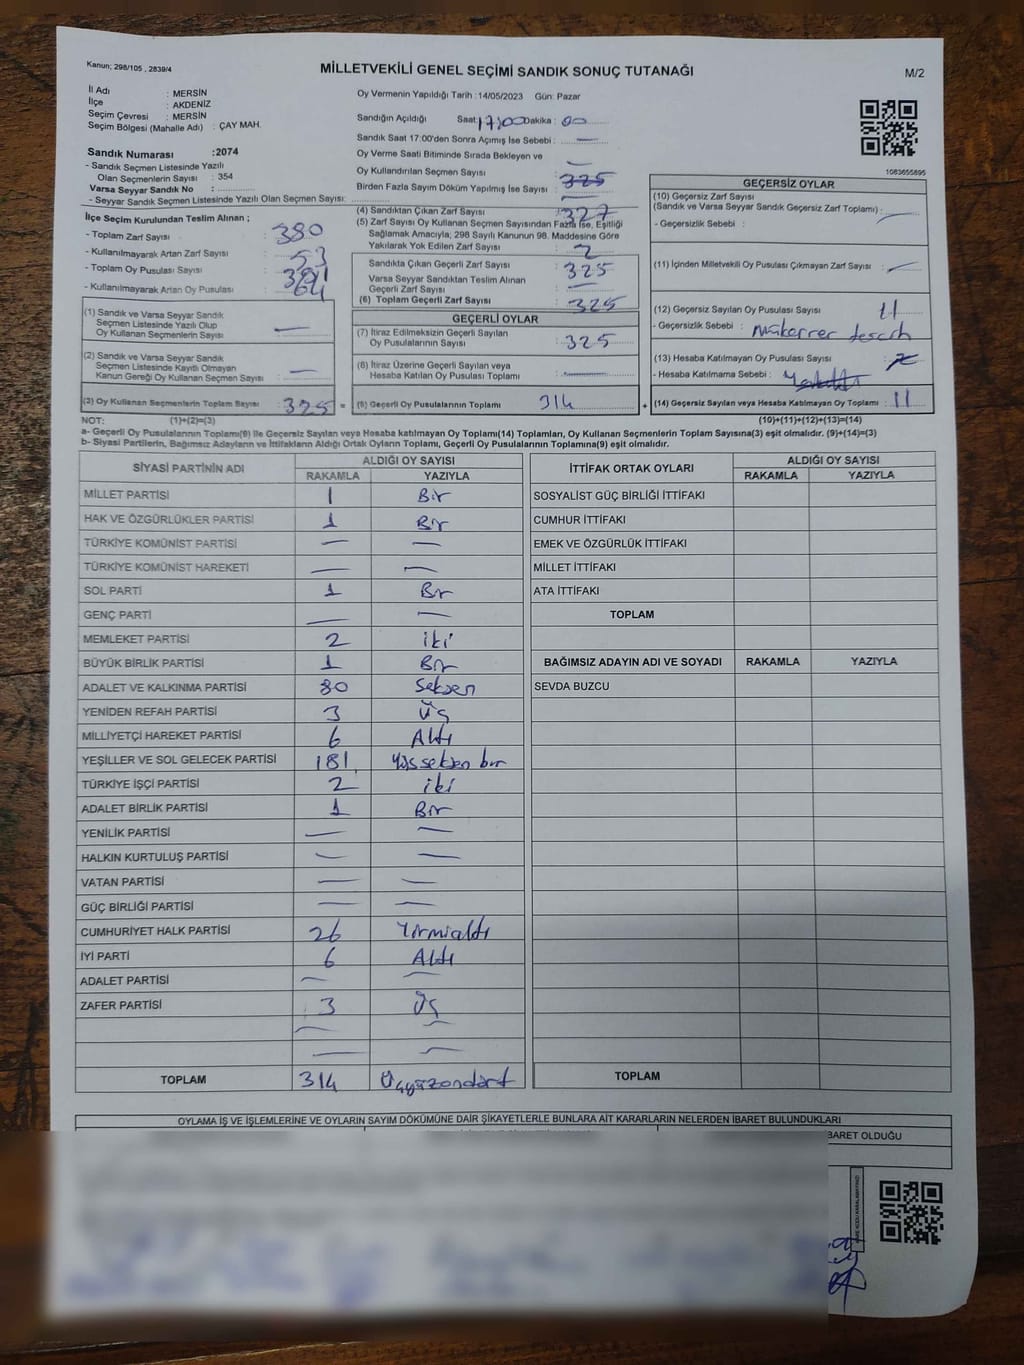 Kanun; 298/105 , 2839/4
MİLLETVEKİLİ GENEL SEÇİMİ SANDIK SONUÇ TUTANAĞI
M/2
İl Adı : MERSİN
İlçe : AKDENİZ
Seçim Çevresi : MERSİN
Seçim Bölgesi (Mahalle Adı) : ÇAY MAH.
Sandık Numarası :2074
- Sandık Seçmen Listesinde Yazılı
Olan Seçmenlerin Sayısı : 354
Varsa Seyyar Sandık No : ..............
- Seyyar Sandık Seçmen Listesinde Yazılı Olan Seçmen Sayısı: ..............
Oy Vermenin Yapıldığı Tarih :14/05/2023 Gün: Pazar
Sandığın Açıldığı Saat: 17:00 Dakika : 00
Sandık Saat 17:00'den Sonra Açımış İse Sebebi : —
Oy Verme Saati Bitiminde Sırada Bekleyen ve
Oy Kullandırılan Seçmen Sayısı : —
Birden Fazla Sayım Döküm Yapılmış İse Sayısı : 325
1083655895
İlçe Seçim Kurulundan Teslim Alınan ;
- Toplam Zarf Sayısı : 380
- Kullanılmayarak Artan Zarf Sayısı : 53
- Toplam Oy Pusulası Sayısı
- Kullanılmayarak Artan Oy Pusulası : 64
(1) Sandık ve Varsa Seyyar Sandık
Seçmen Listesinde Yazılı Olup
Oy Kullanan Seçmenlerin Sayısı : —
(2) Sandık ve Varsa Seyyar Sandık
Seçmen Listesinde Kayıtlı Olmayan
Kanun Gereği Oy Kullanan Seçmen Sayısı : —
(3) Oy Kullanan Seçmenlerin Toplam Sayısı : 325 =
(4) Sandıktan Çıkan Zarf Sayısı : 327
(5) Zarf Sayısı Oy Kullanan Seçmen Sayısından Fazla İse, Eşitliği
Sağlamak Amacıyla; 298 Sayılı Kanunun 98. Maddesine Göre
Yakılarak Yok Edilen Zarf Sayısı : 2
Sandıkta Çıkan Geçerli Zarf Sayısı : 325
Varsa Seyyar Sandıktan Teslim Alınan
Geçerli Zarf Sayısı : —
(6) Toplam Geçerli Zarf Sayısı : 325
GEÇERLİ OYLAR
(7) İtiraz Edilmeksizin Geçerli Sayılan
Oy Pusulalarının Sayısı : 325
(8) İtiraz Üzerine Geçerli Sayılan veya
Hesaba Katılan Oy Pusulası Toplamı : —
(9) Geçerli Oy Pusulalarının Toplamı : 314 +
GEÇERSİZ OYLAR
(10) Geçersiz Zarf Sayısı
(Sandık ve Varsa Seyyar Sandık Geçersiz Zarf Toplamı) : —
- Geçersizlik Sebebi :
(11) İçinden Milletvekili Oy Pusulası Çıkmayan Zarf Sayısı : —
(12) Geçersiz Sayılan Oy Pusulası Sayısı : 11
- Geçersizlik Sebebi : mükerrer tercih
(13) Hesaba Katılmayan Oy Pusulası Sayısı : 2
- Hesaba Katılmama Sebebi :
(14) Geçersiz Sayılan veya Hesaba Katılmayan Oy Toplamı : 11
NOT: (1)+(2)=(3) (10)+(11)+(12)+(13)=(14)
a- Geçerli Oy Pusulalarının Toplamı(9) ile Geçersiz Sayılan veya Hesaba katılmayan Oy Toplamı(14) Toplamları, Oy Kullanan Seçmenlerin Toplam Sayısına(3) eşit olmalıdır. (9)+(14)=(3)
b- Siyasi Partilerin, Bağımsız Adayların ve İttifakların Aldığı Ortak Oyların Toplamı, Geçerli Oy Pusulalarının Toplamına(9) eşit olmalıdır.
SİYASİ PARTİNİN ADI ALDIĞI OY SAYISI
RAKAMLA YAZIYLA
MİLLET PARTİSİ 1 Bir
HAK VE ÖZGÜRLÜKLER PARTİSİ 1 Bir
TÜRKİYE KOMÜNİST PARTİSİ — —
TÜRKİYE KOMÜNİST HAREKETİ — —
SOL PARTİ 1 Bir
GENÇ PARTİ — —
MEMLEKET PARTİSİ 2 iki
BÜYÜK BİRLİK PARTİSİ 1 Bir
ADALET VE KALKINMA PARTİSİ 80 Seksen
YENİDEN REFAH PARTİSİ 3 Üç
MİLLİYETÇİ HAREKET PARTİSİ 6 Altı
YEŞİLLER VE SOL GELECEK PARTİSİ 181 Yüzseksen bir
TÜRKİYE İŞÇİ PARTİSİ 2 iki
ADALET BİRLİK PARTİSİ 1 Bir
YENİLİK PARTİSİ — —
HALKIN KURTULUŞ PARTİSİ — —
VATAN PARTİSİ — —
GÜÇ BİRLİĞİ PARTİSİ — —
CUMHURİYET HALK PARTİSİ 26 Yirmialtı
İYİ PARTİ 6 Altı
ADALET PARTİSİ — —
ZAFER PARTİSİ 3 Üç
— —
— —
TOPLAM 314 Üçyüzondört
İTTİFAK ORTAK OYLARI ALDIĞI OY SAYISI
RAKAMLA YAZIYLA
SOSYALİST GÜÇ BİRLİĞİ İTTİFAKI
CUMHUR İTTİFAKI
EMEK VE ÖZGÜRLÜK İTTİFAKI
MİLLET İTTİFAKI
ATA İTTİFAKI
TOPLAM
BAĞIMSIZ ADAYIN ADI VE SOYADI RAKAMLA YAZIYLA
SEVDA BUZCU
TOPLAM
OYLAMA İŞ VE İŞLEMLERİNE VE OYLARIN SAYIM DÖKÜMÜNE DAİR ŞİKAYETLERLE BUNLARA AİT KARARLARIN NELERDEN İBARET BULUNDUKLARI
BARET OLDUĞU